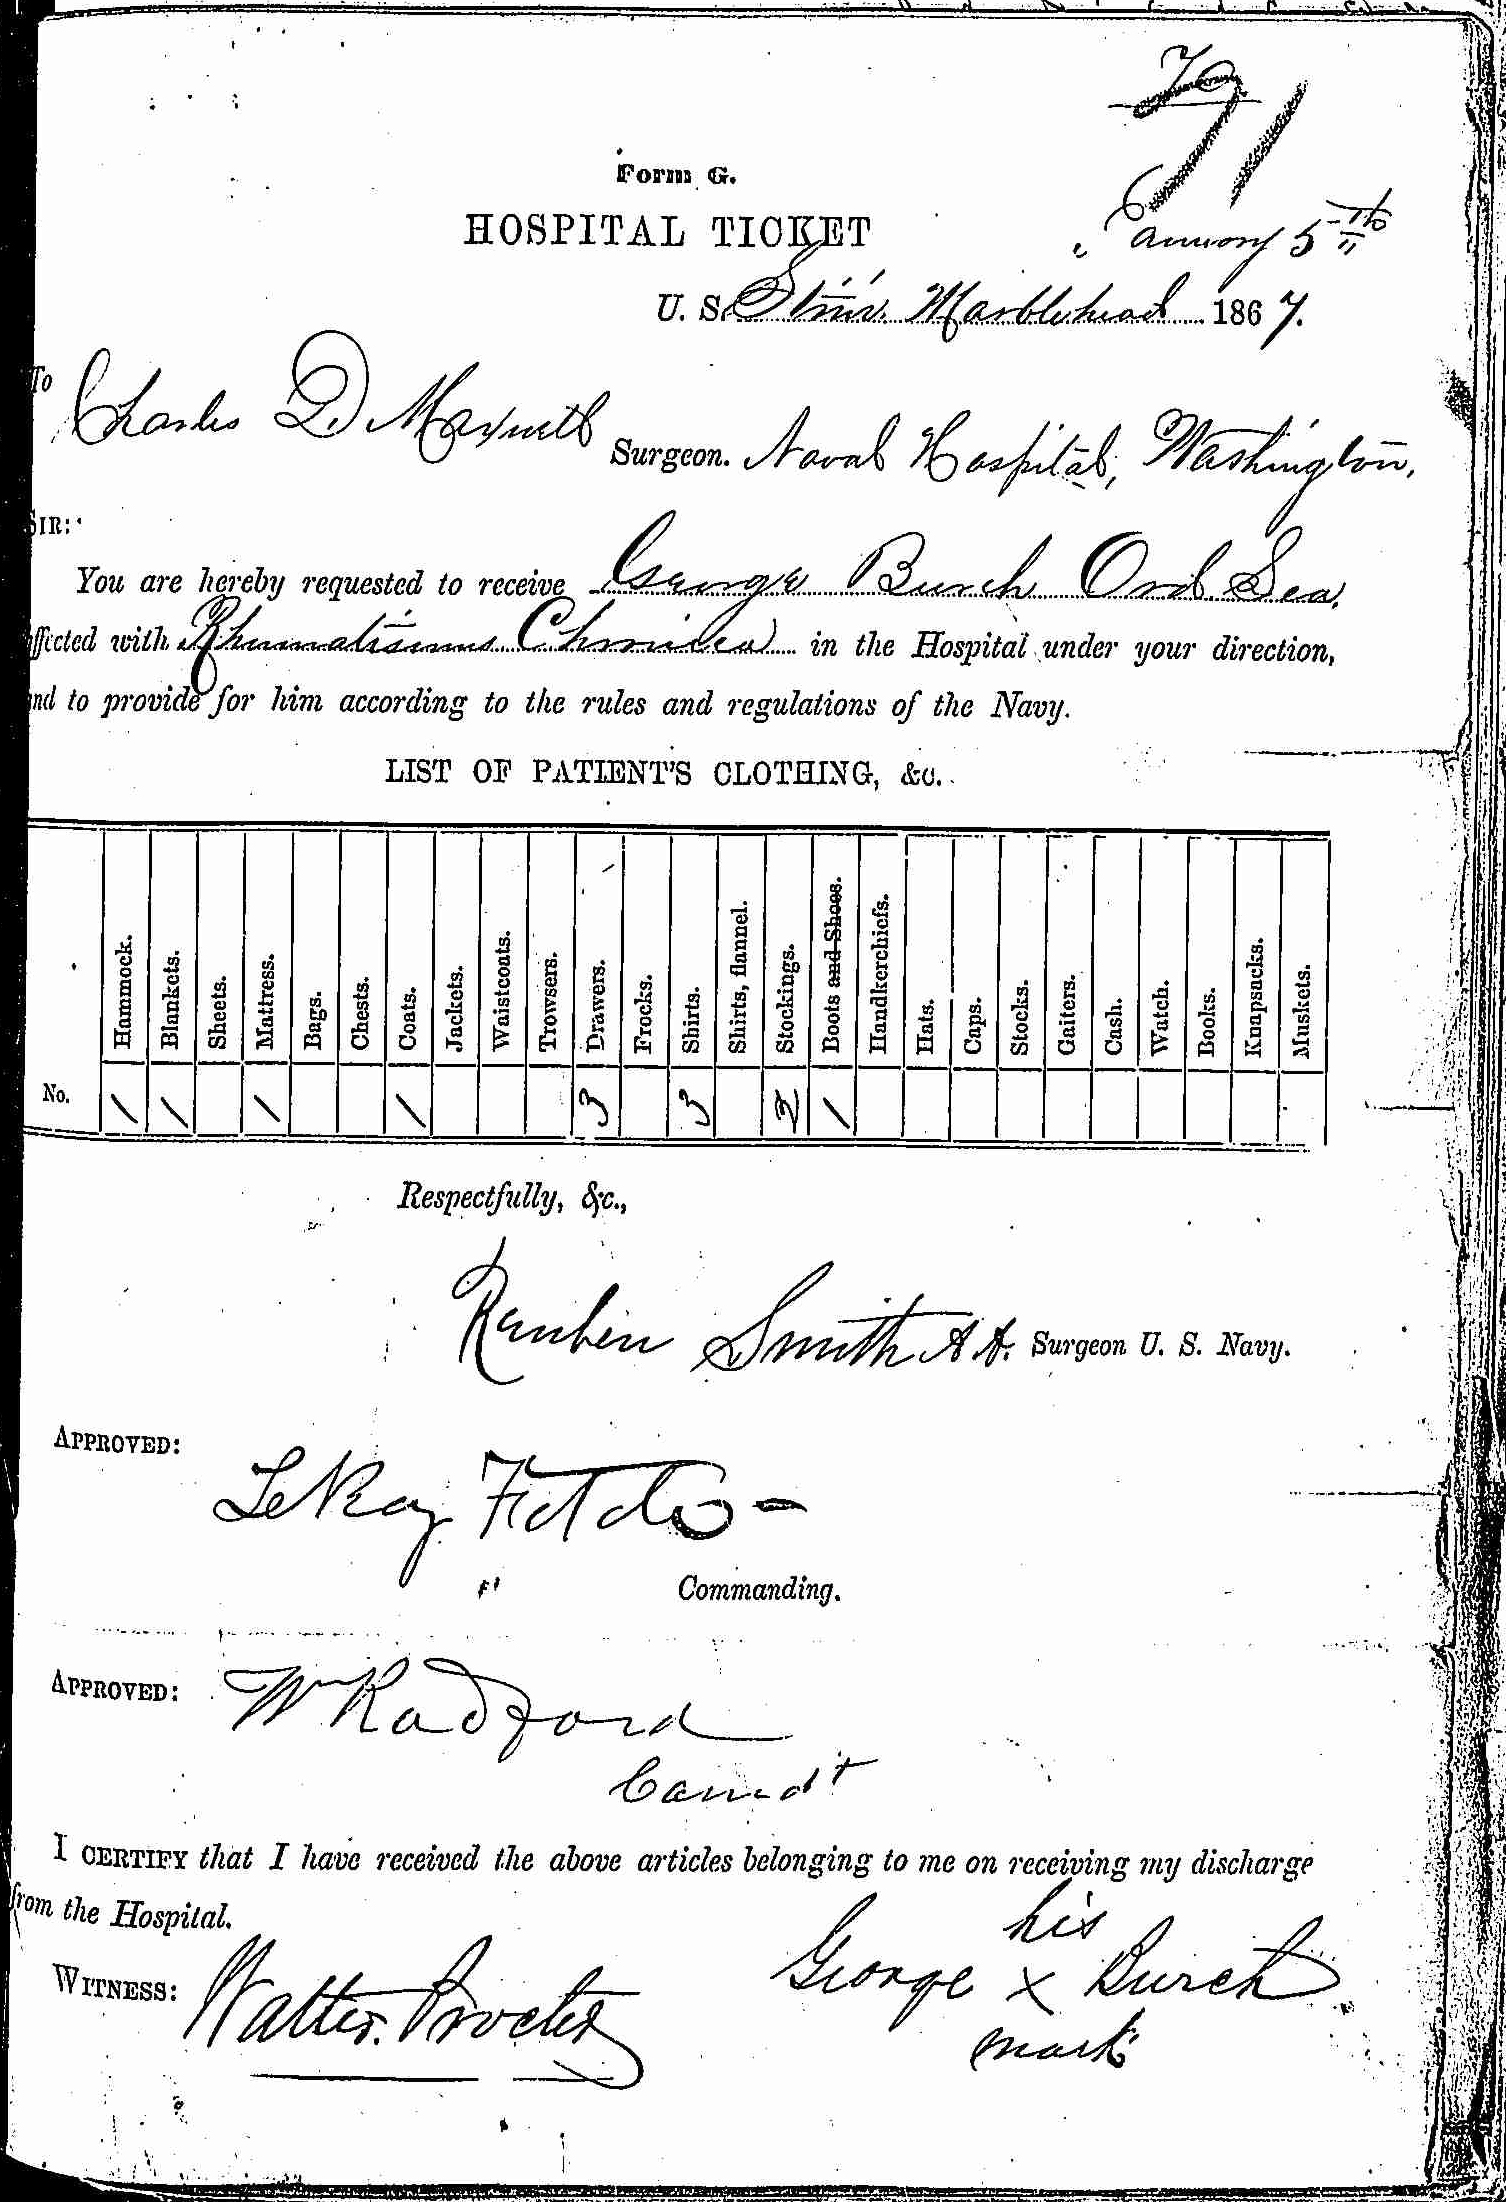 70
71
Form G.
HOSPITAL TICKET
January 5th
U. S. Stm'r. Marblehead 1867.
To
Charles D. Maxwell Surgeon. Naval Hospital, Washington.
SIR:
You are hereby requested to receive George Burch Ord. Sea.
affected with Rheumatismus Chronicus in the Hospital under your direction,
and to provide for him according to the rules and regulations of the Navy.
LIST OF PATIENT'S CLOTHING, &c.
Hammock. Blankets. Sheets. Mattress. Bags. Chests. Coats. Jackets. Waistcoats. Trowsers. Drawers. Frocks. Shirts. Shirts, flannel. Stockings. Boots and Shoes. Handkerchiefs. Hats. Caps. Stocks. Gaiters. Cash. Watch. Books. Knapsacks. Muskets.
No. 1 1 1 1 3 3 2 1
Respectfully, &c.,
Reuben Smith A A. Surgeon U. S. Navy.
APPROVED:
LeRoy Fitch
" Commanding.
APPROVED: Wm Radford
Comdt
I CERTIFY that I have received the above articles belonging to me on receiving my discharge
from the Hospital.
his
WITNESS: Walter Procter George x Burch
mark